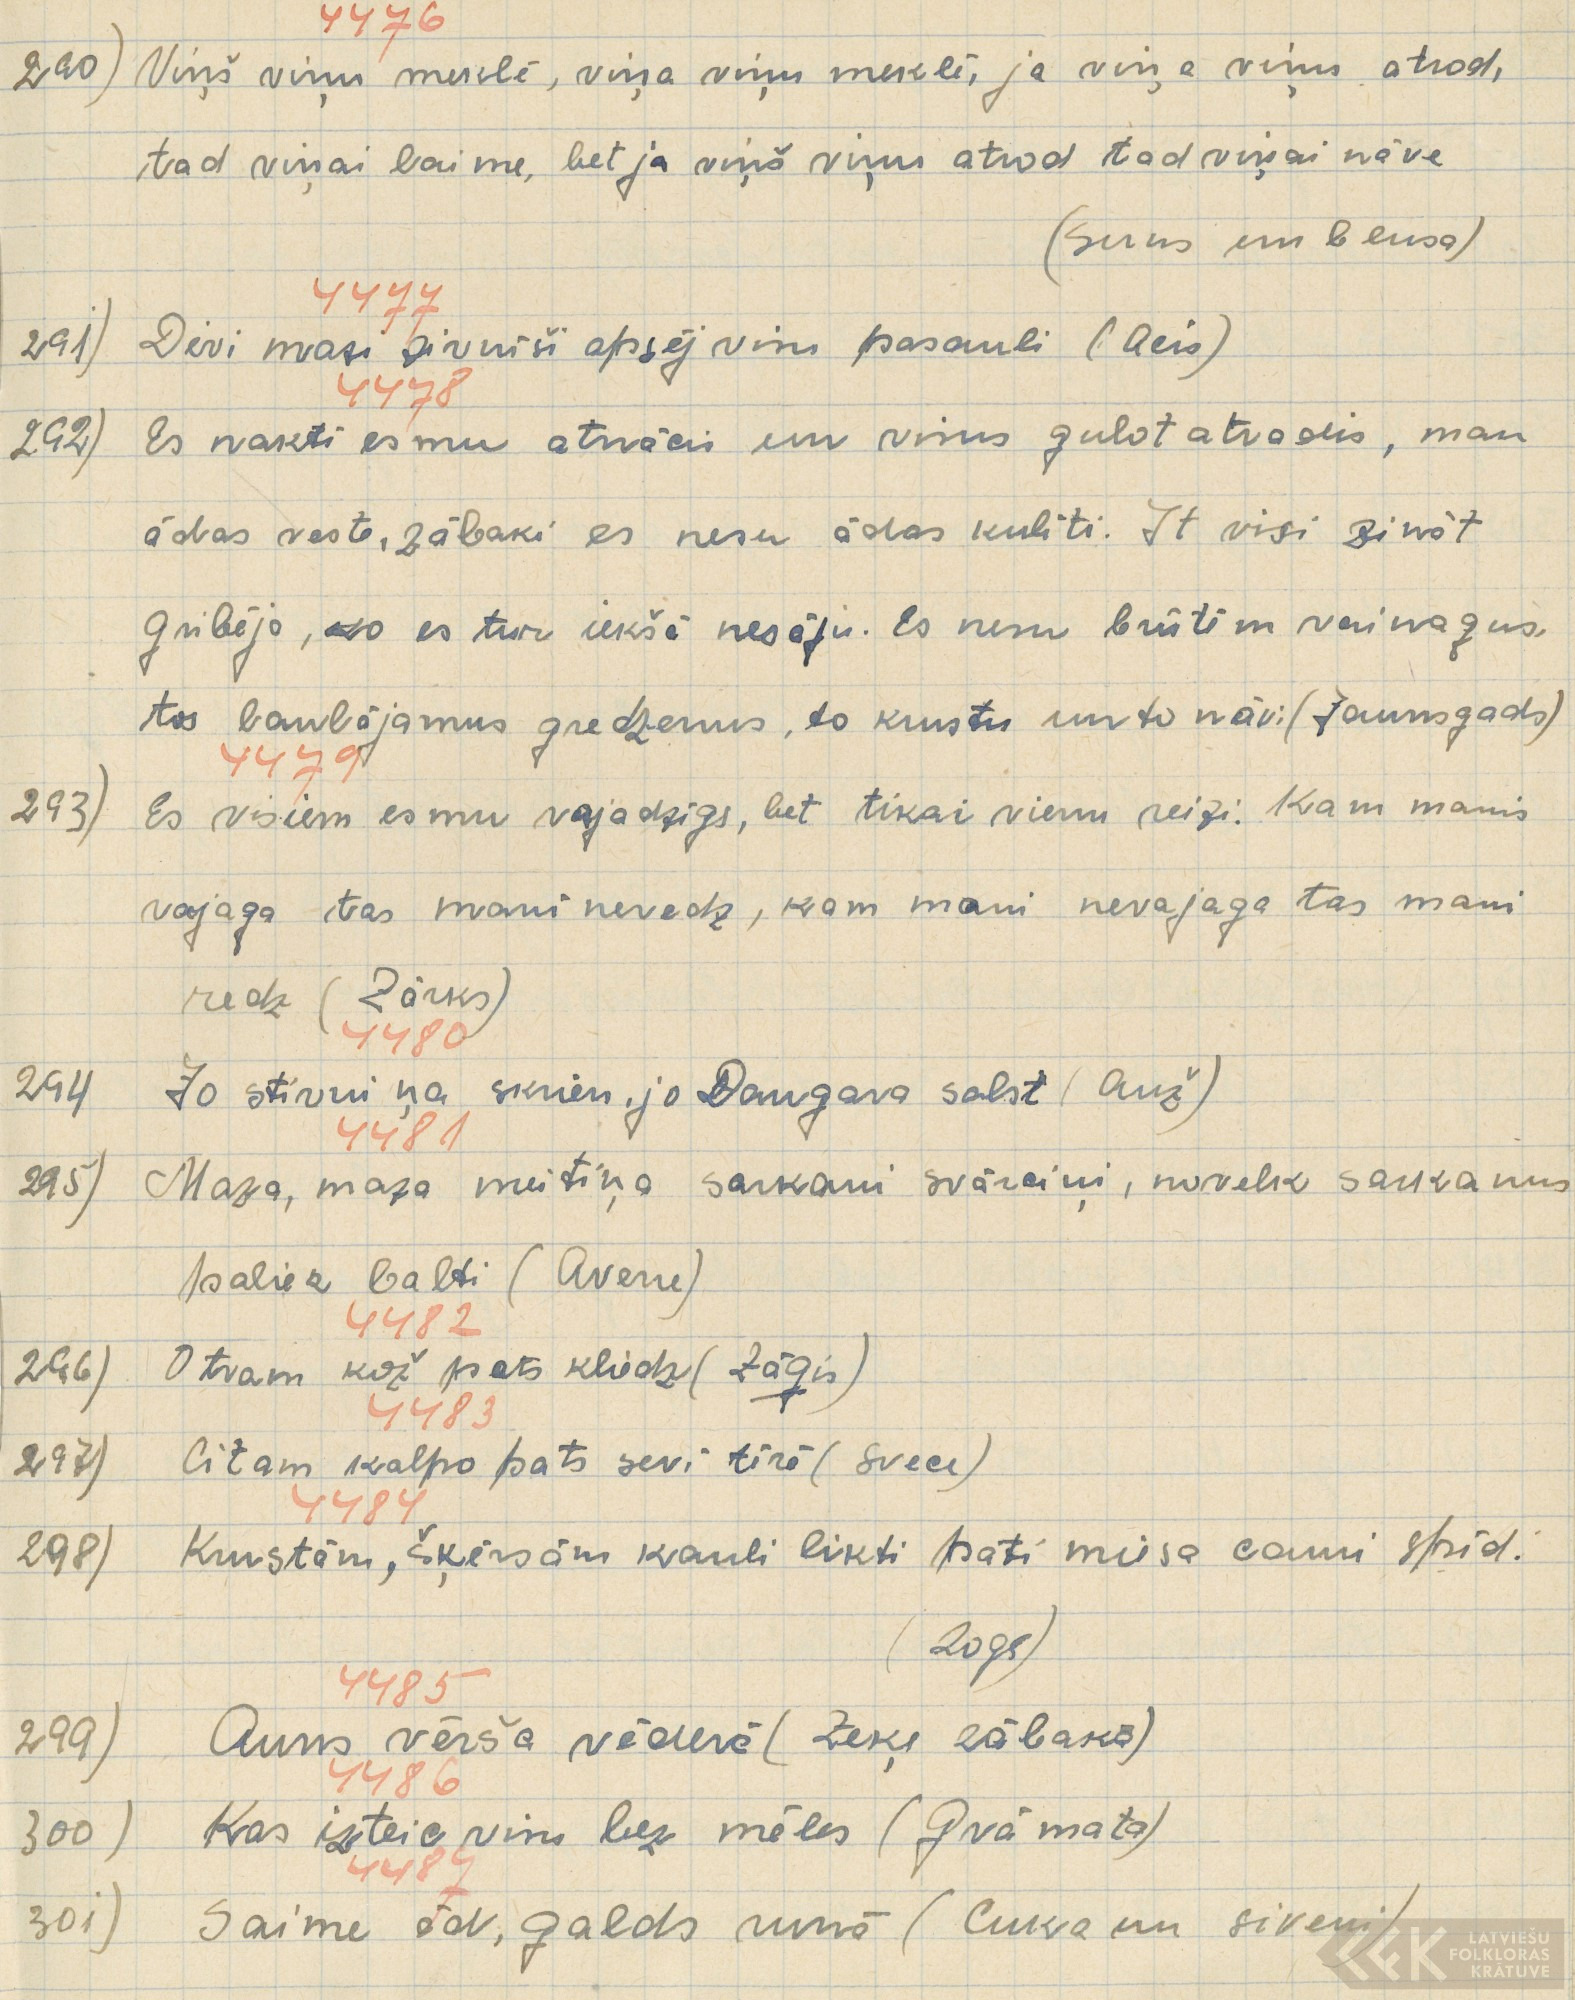 4476
290) Viņš viņu meklē, viņa viņu meklē, ja viņa viņu atrod,
tad viņai laime, bet ja viņš viņu atrod tad viņai nāve
(Suns un blusa)
4477
291) Divi mazi zirnīši apsēj visu pasauli (Acis)
4478
292) Es naktī esmu atnācis un visus guļot atradis, man
ādas veste, zābaki es nesu ādas kulīti. It visi zināt
gribēja, ko es tur iekšā nesāju. Es nesu brūtēm vainagus,
tos laulājamus gredzenus, to krustu un to nāvi (Jaunsgads)
4479
293) Es visiem esmu vajadzīgs, bet tikai vienu reizi. Kam manis
vajaga tas mani neredz, kam mani nevajaga tas mani
redz (Zārks)
4480
294 Jo stirniņa skrien, jo Daugava salst (Auž)
4481
295) Maza, maza meitiņa sarkani svārciņi, novelk sarkanus
paliek balti (Avene)
4482
296) Otram kož pats kliedz (Zāģis)
4483
297) Citam kalpo pats sevi tērē (Svece)
4484
298) Krustām, šķērsām kauli likti pati mūsa cauri spīd.
(Logs)
4485
299) Auns vērša vēderā (Zeķe zābakā)
4486
300) Kas izteic visu bez mēles (Grāmata)
4487
301) Saime ēd, galds runā (Cuka un siveni)
LATVIEŠU
FOLKLORAS
KRĀTUVE